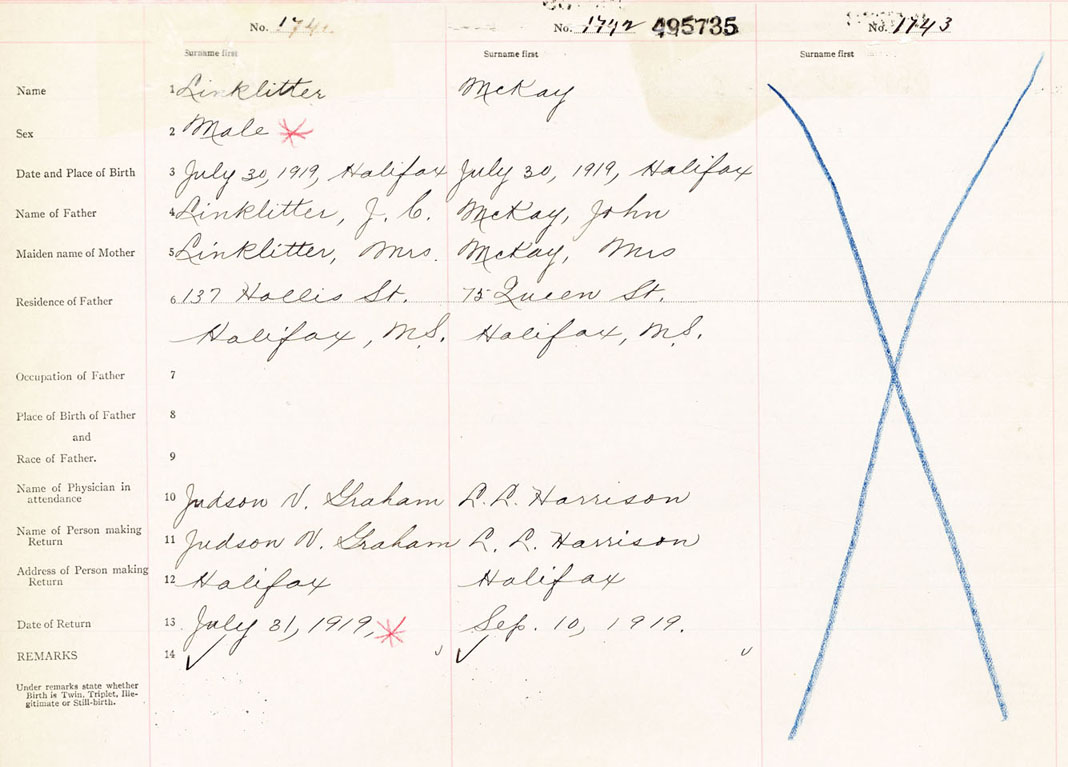 No. 174 No. 1742 495735 No. 1743
Surname first Surname first Surname first
Name 1 Linklitter McKay
Sex 2 Male
Date and Place of Birth 3 July 30, 1919, Halifax July 30, 1919, Halifax
Name of Father 4 Linklitter, J. C. McKay, John
Maiden name of Mother 5 Linklitter, Mrs. McKay, Mrs
Residence of Father 6 137 Hollis St. 75 Queen St.
Halifax, N.S. Halifax, N.S.
Occupation of Father 7
Place of Birth of Father 8
and
Race of Father. 9
Name of Physician in
attendance 10 Judson V. Graham L. L. Harrison
Name of Person making
Return 11 Judson V. Graham L. L. Harrison
Address of Person making
Return 12 Halifax Halifax
Date of Return 13 July 31, 1919, Sep. 10, 1919.
REMARKS 14
Under remarks state whether
Birth is Twin, Triplet, Ille-
gitimate or Still-birth.